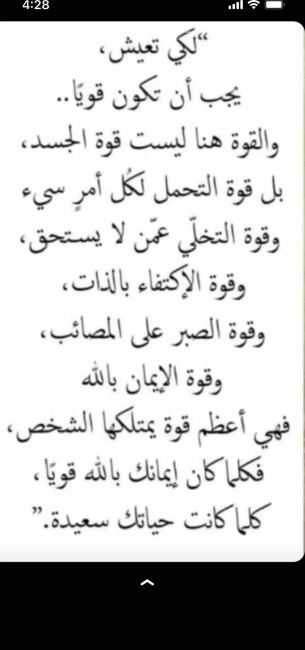 4:28
“لكي تعيش،
يجب أن تكون قويًا..
والقوة هنا ليست قوة الجسد،
بل قوة التحمل لكُل أمرٍ سيء
وقوة التخلّي عمّن لا يستحق،
وقوة الإكتفاء بالذات،
وقوة الصبر على المصائب،
وقوة الإيمان بالله
فهي أعظم قوة يمتلكها الشخص،
فكلما كان إيمانك بالله قويًا،
كلما كانت حياتك سعيدة.”